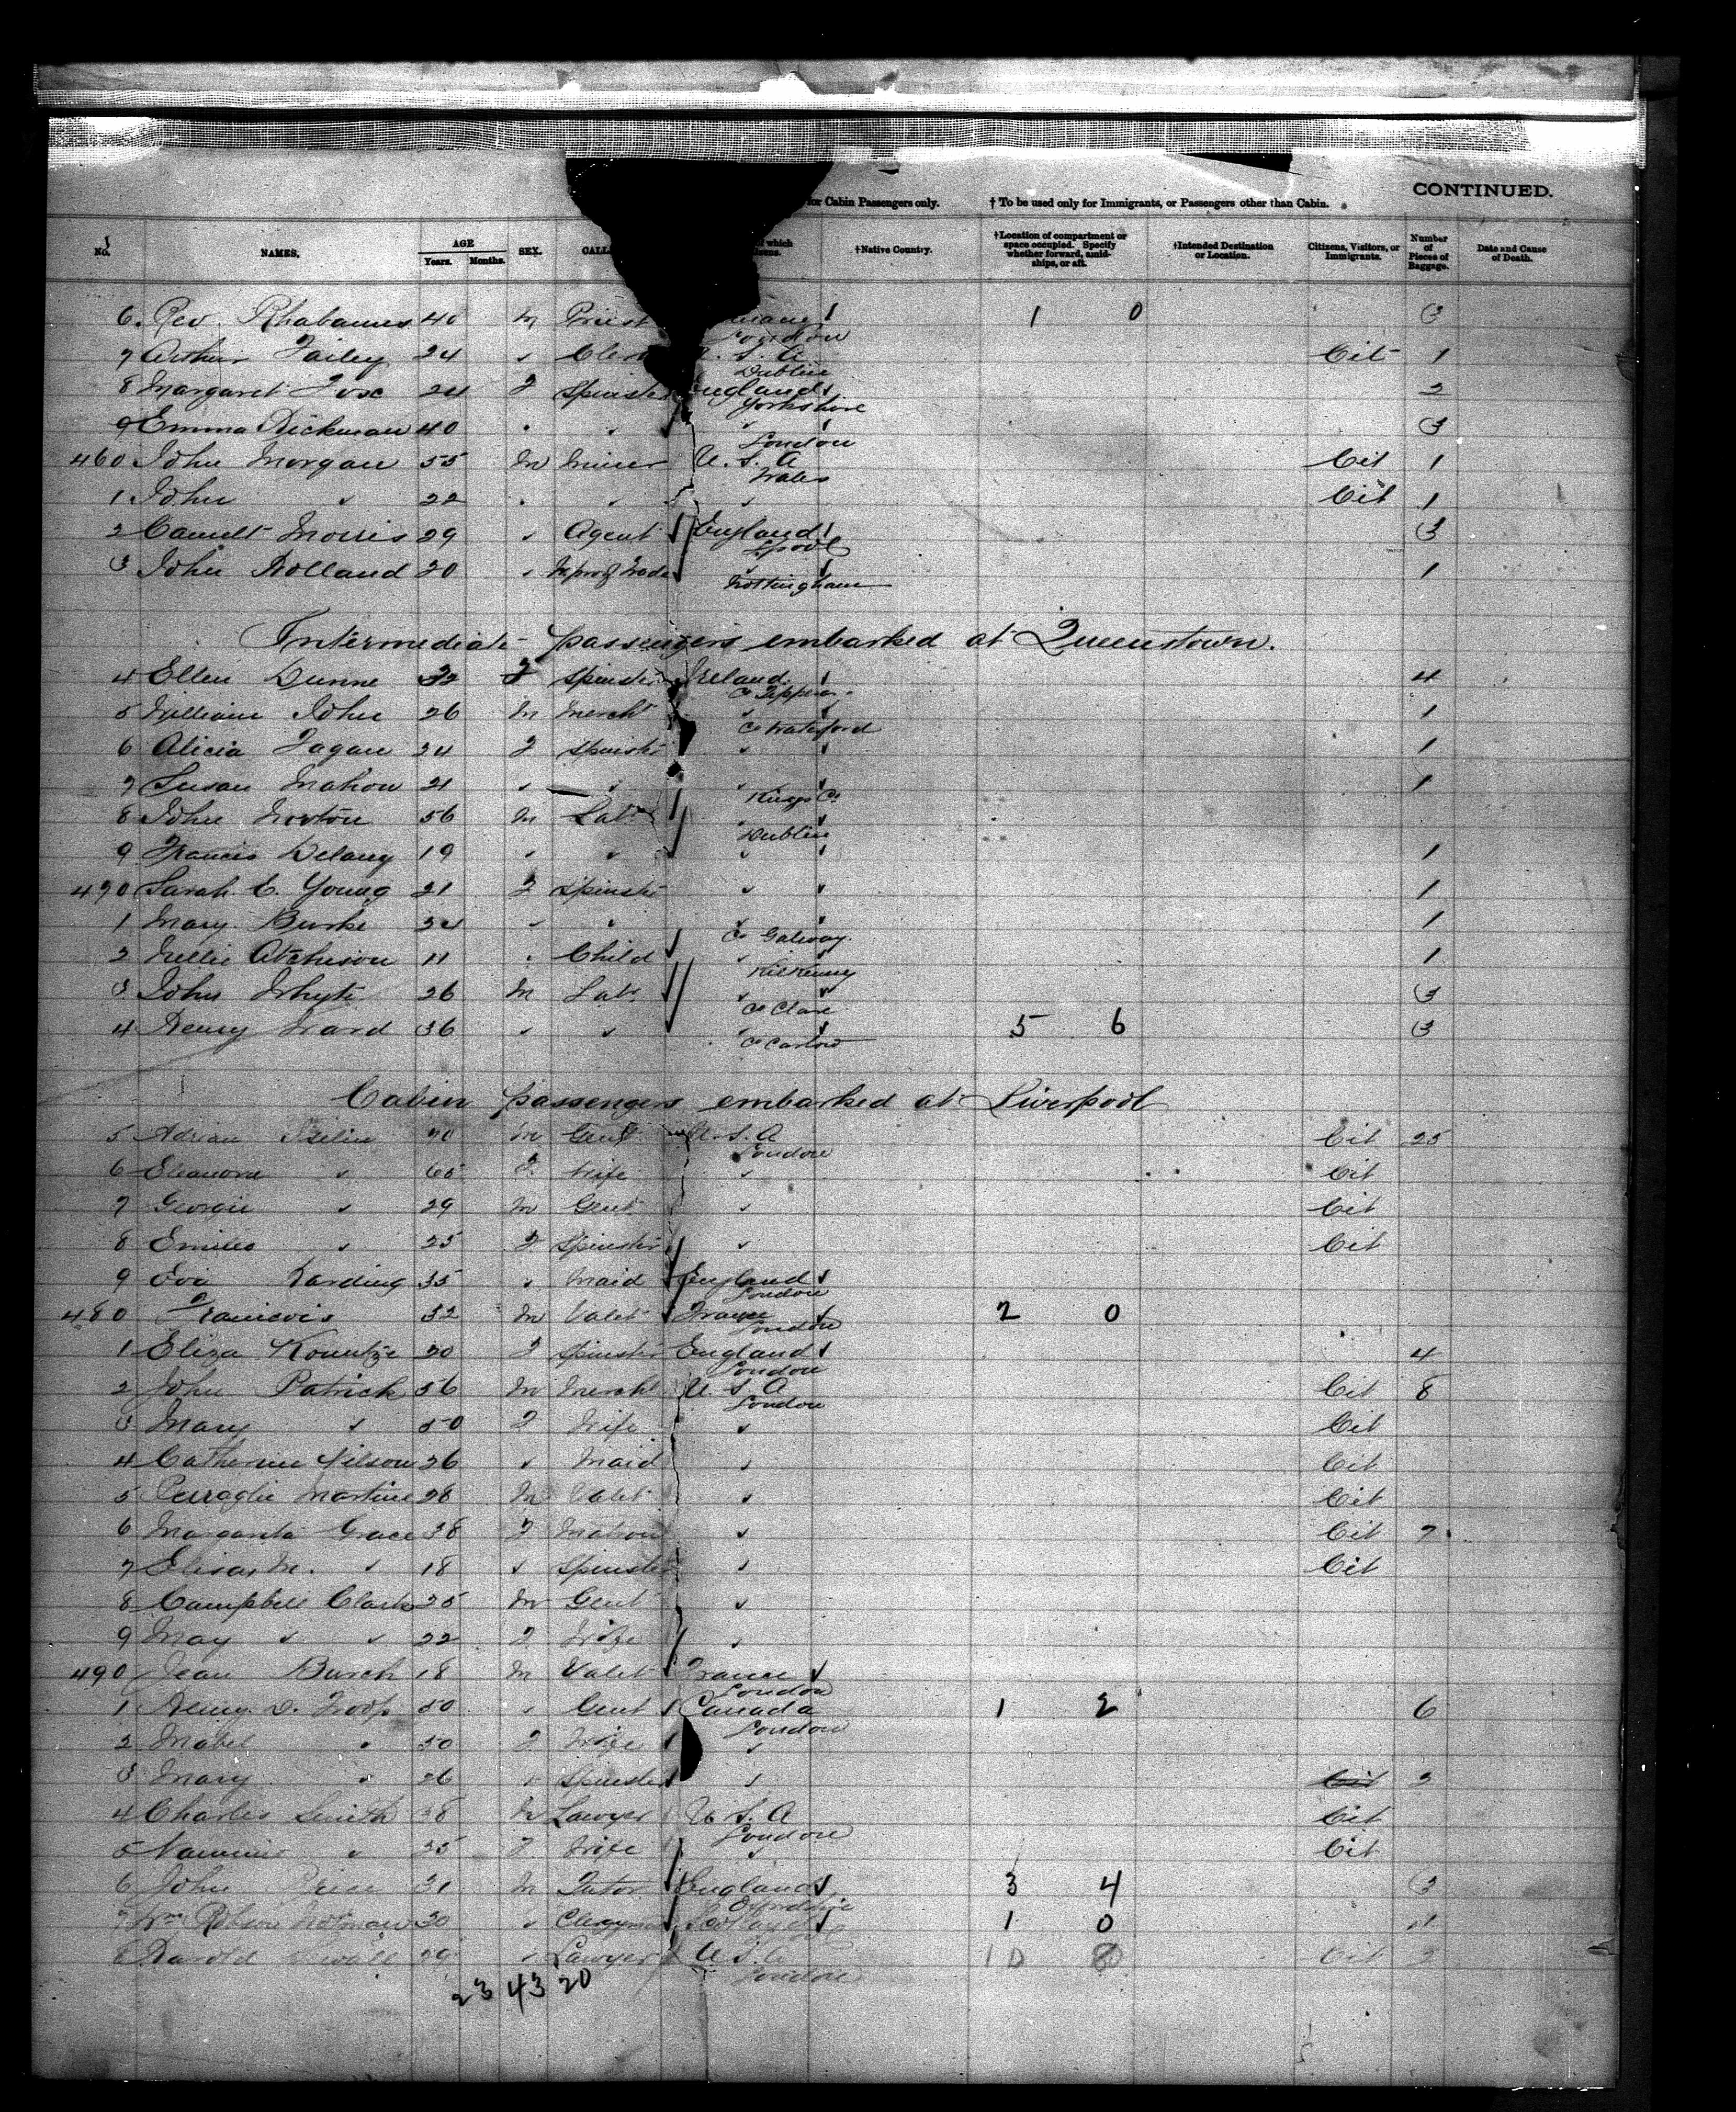 CONTINUED.
for Cabin Passengers only. † To be used only for Immigrants, or Passengers other than Cabin.
No. NAMES, AGE Years. Months. SEX. CALL of which †Native Country. †Location of compartment or space occupied. Specify whether forward, amidships, or aft. †Intended Destination or Location. Citizens, Visitors, or Immigrants. Number of Pieces of Baggage. Date and Cause of Death.
6. Rev 40 M Priest 1 0 3
London
7 Arthur 24 " Clerk U. S. A Cit 1
Dublin
8 Margaret 24 F Spinster England 2
Yorkshire
9 Emma Dickman 40 " " " 3
London
460 John Morgan 55 M Miner U. S. A Cit 1
Wales
1 John " 22 " " " Cit 1
2 Morris 29 " Agent England 3
Lpool
3 John Holland 20 " " 1
Nottingham
Intermediate passengers embarked at Queenstown.
4 Ellen Dunne 32 F Spinster Ireland 4
Co Tipper
5 William John 26 M Mercht " 1
Co Waterford
6 Alicia Fagan 24 F Spinstr " 1
7 Susan Mahon 21 " " " 1
Kings Co
8 John Norton 56 M Labr "
Dublin
9 Francis Delany 19 " " " 1
470 Sarah C. Young 21 F Spinstr " 1
1 Mary Burke 24 " " " 1
Co Galway
2 Nellie Atchison 11 " Child " 1
Kilkenny
3 John Whyte 26 M Labr " 3
Co Clare
4 Henry Ward 36 " " " 5 6 3
Co Carlow
Cabin passengers embarked at Liverpool
5 Adrian Iselin 70 M Gent U. S. A Cit 25
London
6 Eleanora " 65 F Wife " Cit
7 Georgie " 29 M Gent " Cit
8 " 25 F Spinstr " Cit
9 Harding 35 " Maid England
London
480 Francois 32 M Valet France 2 0
London
1 Eliza Kountze 20 F Spinster England 4
London
2 John Patrick 56 M Mercht U S A Cit 8
London
3 Mary " 50 F Wife " Cit
4 Catherine 26 " Maid " Cit
5 Martine 28 M Valet " Cit
6 Margarita Grace 38 F Matron " Cit 7
7 Elisa M. " 18 " Spinster " Cit
8 Campbell Clark 25 M Gent "
9 May " " 22 F Wife "
490 Jean Busch 18 M Valet France
London
1 Henry D. Troop 50 " Gent Canada 1 2 6
London
2 Mabel " 50 F Wife "
3 Mary " 26 " Spinster " Cit 2
4 Charles Smith 38 M Lawyer U S. A Cit
London
5 " 35 F Wife " Cit
6 John Price 31 M Tutor England 3 4 3
7 Wm Robson 30 " Clergyman Scotland 1 0
8 Harold Sewall 29 " Lawyer U. S. A 10 8 Cit 2
London
23 43 20